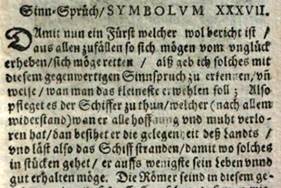 Sinn-Sprüch/SYMBOLVM XXXVII.
Damit nun ein Fürst welcher wol bericht ist/
aus allen zufällen so sich mögen vom vnglück
erheben/sich möge retten/ alß geb ich solches mit
diesem gegenwertigen Sinnspruch zu erkennen/ vñ
weise/wan man das kleineste erwehlen soll; Also
pfleget es der Schiffer zu thun/welcher (nach allem
widerstand) wan er alle hoffnung vnd muht verlo-
ren hat/dan besihet er die gelegenheit deß Landts/
vnd läst also das Schiff stranden/damit wo solches
in stücken gehet/ er auffs wenigste sein Leben vnnd
gut erhalten möge. Die Römer seind in diesem ge-